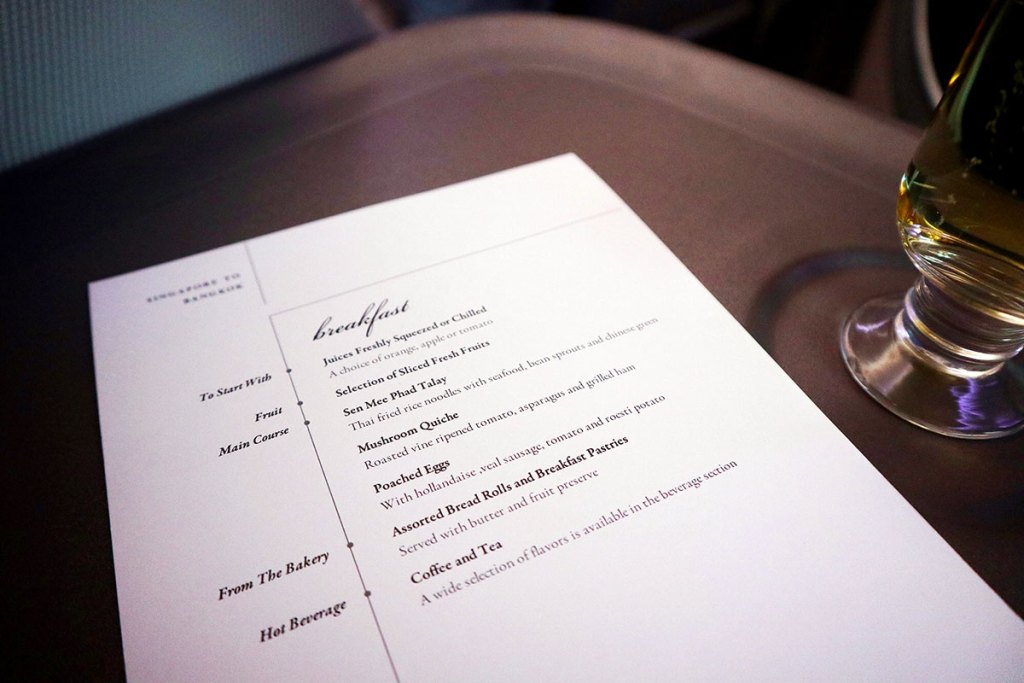 SINGAPORE TO
BANGKOK
breakfast
To Start With
Juices Freshly Squeezed or Chilled
A choice of orange, apple or tomato
Fruit
Selection of Sliced Fresh Fruits
Main Course
Sen Mee Phad Talay
Thai fried rice noodles with seafood, bean sprouts and chinese green
Mushroom Quiche
Roasted vine ripened tomato, asparagus and grilled ham
Poached Eggs
With hollandaise ,veal sausage, tomato and roesti potato
From The Bakery
Assorted Bread Rolls and Breakfast Pastries
Served with butter and fruit preserve
Hot Beverage
Coffee and Tea
A wide selection of flavors is available in the beverage section